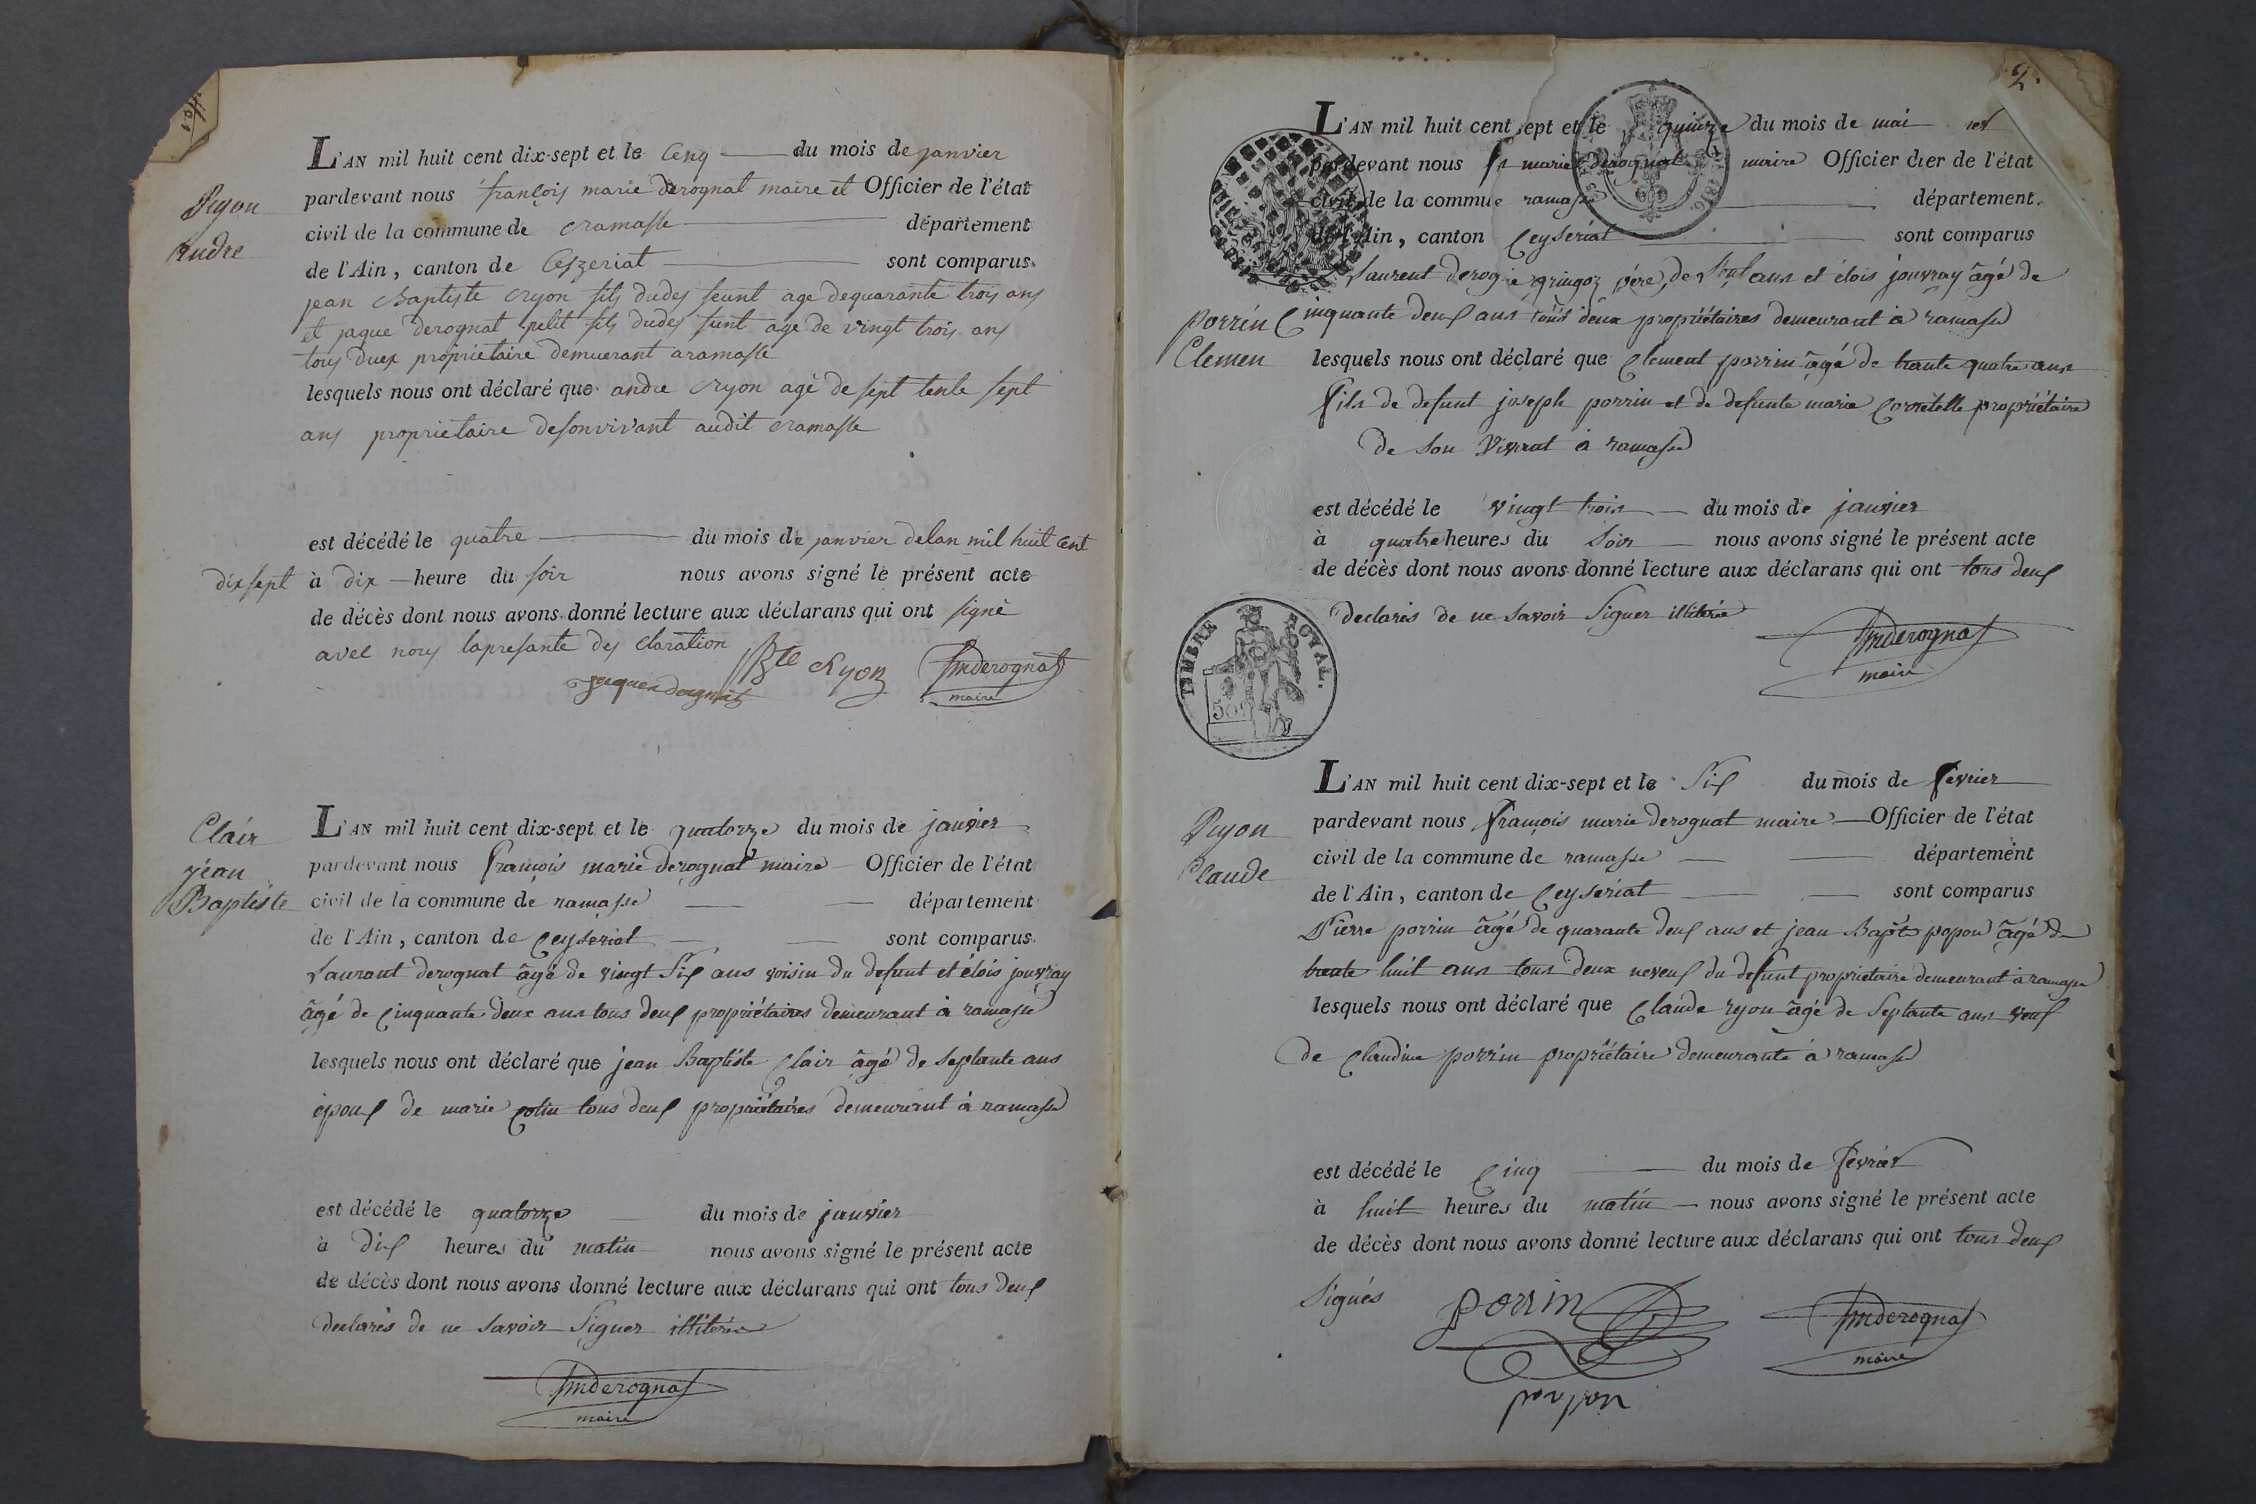 L'AN mil huit cent dix-sept et le Cenq du mois de janvier
pardevant nous françois marie derognat maire et Officier de l'état
civil de la commune de ramasse département
de l'Ain, canton de Ceyzeriat sont comparus
Ryon
Andre
jean Baptiste ryon fils dudes feunt age dequarante trois ans
et jaque derognat petit fils dudes funt age de vingt trois ans
tous duex proprietaire demuerant aramasse
lesquels nous ont déclaré que andre ryon agè de sept tente sept
ans proprietaire desonvivant audit ramasse
est décédé le quatre du mois de janvier delan mil huit cent
dix sept à dix heure du soir nous avons signé le présent acte
de décès dont nous avons donné lecture aux déclarans qui ont signè
avec nous lapresante des claration
JBte Ryon fmderognat
maire
Clair
jéan
Baptiste
L'AN mil huit cent dix-sept et le quatorze du mois de janvier
pardevant nous françois marie derognat maire Officier de l'état
civil de la commune de ramasse département
de l'Ain, canton de Ceyseriat sont comparus
Laurant derognat âgé de vingt Six ans voisin du defunt et élois jouvray
âgé de Cinquante deux ans tous deux propriétaires demeurant à ramasse
lesquels nous ont déclaré que jean Baptiste Clair âgé de Septante ans
époux de marie Colin tous deux propriétaires demeurant à ramasse
est décédé le quatorze du mois de janvier
à dix heures du matin nous avons signé le présent acte
de décès dont nous avons donné lecture aux déclarans qui ont tous deux
declarés de ne Savoir Signer illiterés
fmderognat
maire
2.
L'AN mil huit cent sept et le quinze du mois de mai
pardevant nous fs marie derognat maire Officier de l'état
civil de la commune ramasse département
de l'Ain, canton Ceyseriat sont comparus
Laurent père, de ans et élois jouvray âgé de
Cinquante deux ans tous deux propriétaires demeurant à ramasse
Porrin
Clemen
lesquels nous ont déclaré que Clement porrin âgé de trante quatre ans
Fils de defunt joseph porrin et de defunte marie propriétaire
de Son Vivant à ramasse
est décédé le vingt trois du mois de janvier
à quatre heures du Soir nous avons signé le présent acte
de décès dont nous avons donné lecture aux déclarans qui ont tous deux
declarés de ne Savoir Signer illiterés
fmderognat
maire
TIMBRE ROYAL.
50
L'AN mil huit cent dix-sept et le Six du mois de fevrier
pardevant nous françois marie derognat maire Officier de l'état
civil de la commune de ramasse département
de l'Ain, canton de Ceyseriat sont comparus
Ryon
Claude
Pierre porrin âgé de quarante deux ans et jean Bapt popon âgé de
trante huit ans tous deux neveux du defunt proprietaire demeurant à ramasse
lesquels nous ont déclaré que Claude ryon âgé de Septante ans veuf
de Claudine porrin propriétaire demeurante à ramasse
est décédé le Cinq du mois de fevrier
à huit heures du matin nous avons signé le présent acte
de décès dont nous avons donné lecture aux déclarans qui ont tous deux
Signés
porrin
fmderognat
maire